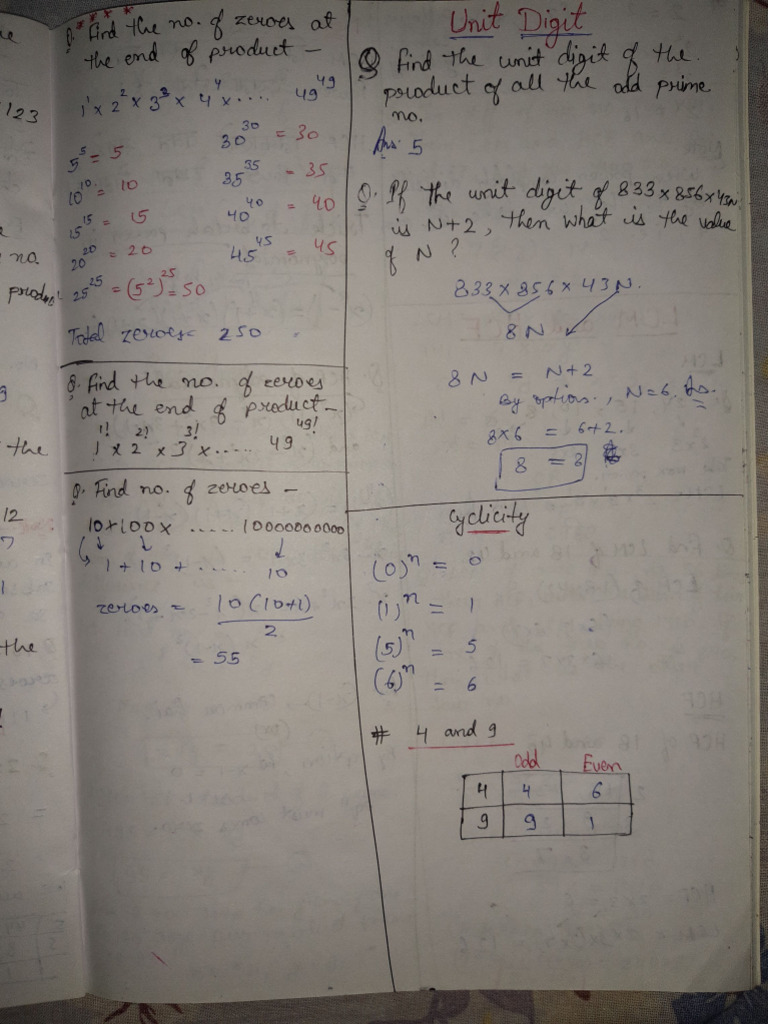 Q. Find the no. of zeroes at
the end of product —
1¹ x 2² x 3³ x 4⁴ x .... 49⁴⁹
5⁵ = 5
10¹⁰ = 10
15¹⁵ = 15
20²⁰ = 20
25²⁵ = (5²)²⁵ = 50
30³⁰ = 30
35³⁵ = 35
40⁴⁰ = 40
45⁴⁵ = 45
Total zeroes = 250
Q. Find the no. of zeroes
at the end of product —
1^1! x 2^2! x 3^3! x ..... 49^49!
Q. Find no. of zeroes —
10 x 100 x ..... 10000000000
1 + 10 + ..... 10
zeroes = 10(10+1)/2
= 55
Unit Digit
Q Find the unit digit of the
product of all the odd prime
no.
Ans: 5
Q. If the unit digit of 833 x 856 x 43N
is N+2, then what is the value
of N ?
833 x 856 x 43N.
8N
8N = N+2
By options, N=6 Ans.
8x6 = 6+2.
8 = 8
Cyclicity
(0)ⁿ = 0
(1)ⁿ = 1
(5)ⁿ = 5
(6)ⁿ = 6
# 4 and 9
Odd Even
4 4 6
9 9 1
123
no.
the
12
7
the